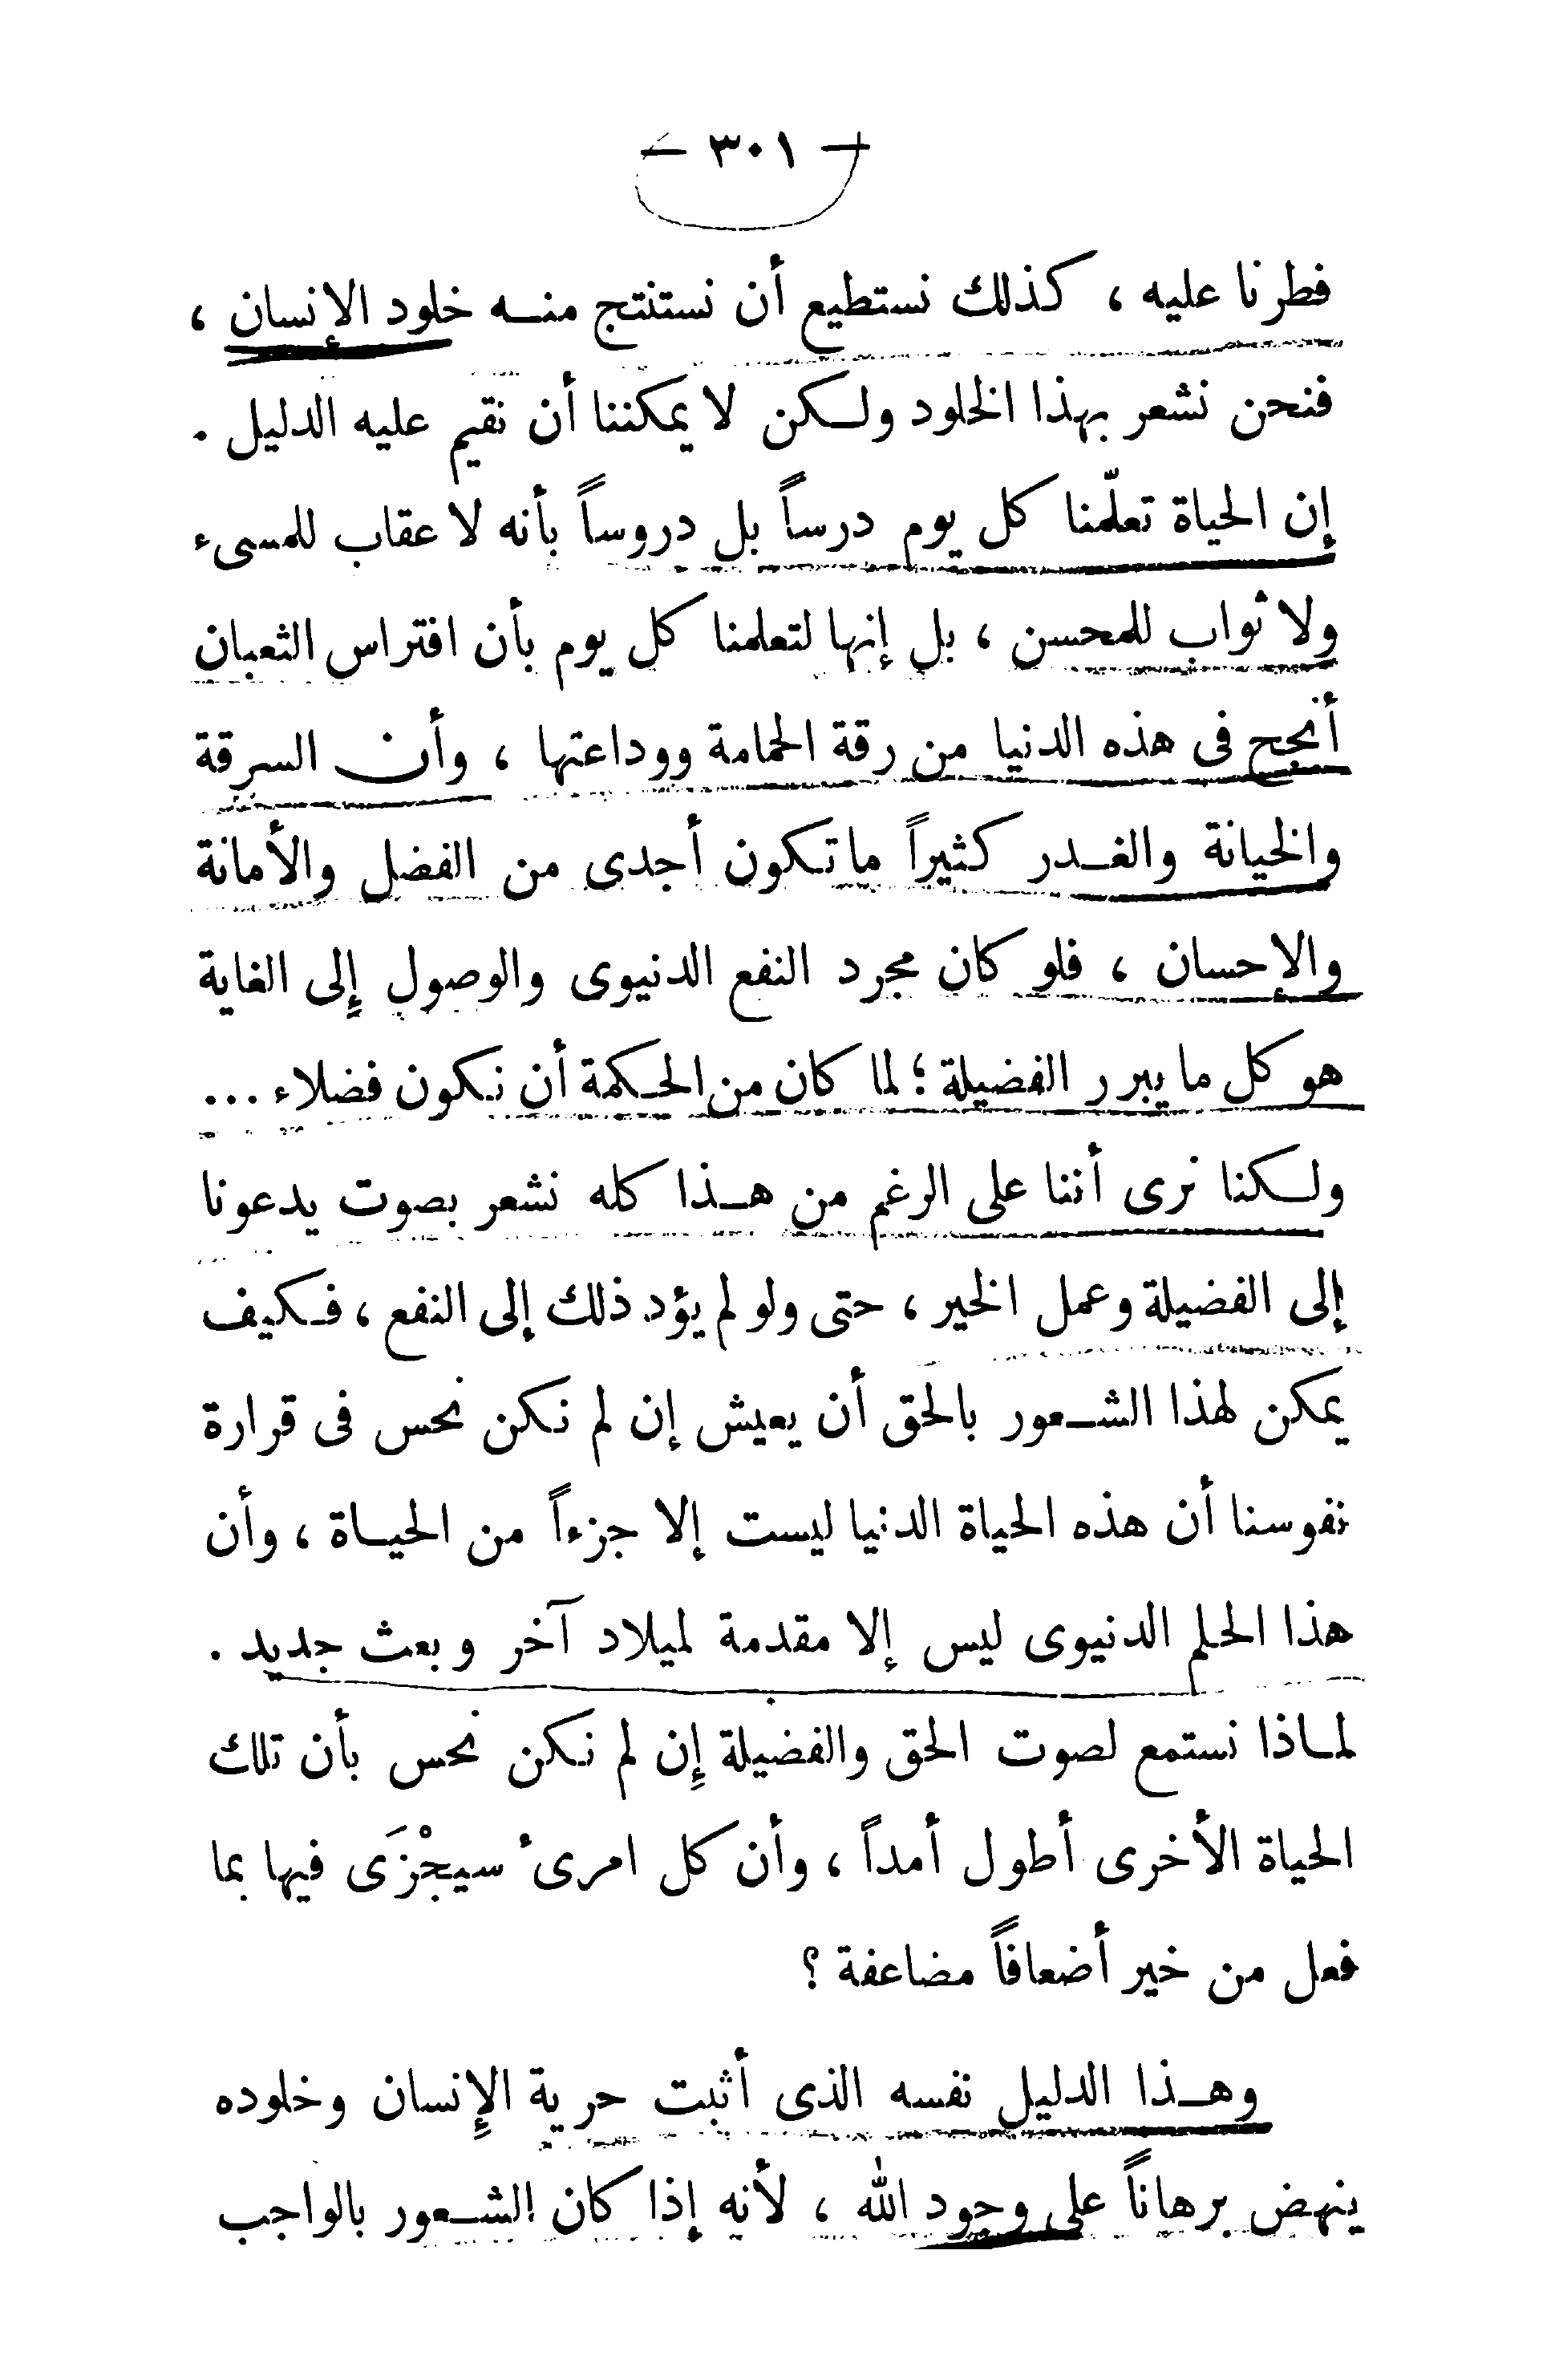 — ٣٠١ —
فطرنا عليه ، كذلك نستطيع أن نستنتج منه خلود الإنسان ،
فنحن نشعر بهذا الخلود ولكن لا يمكننا أن نقيم عليه الدليل .
إن الحياة تعلّمنا كل يوم درساً بل دروساً بأنه لا عقاب للمسىء
ولا ثواب للمحسن ، بل إنها لتعلمنا كل يوم بأن افتراس الثعبان
أنجح فى هذه الدنيا من رقة الحمامة ووداعتها ، وأن السرقة
والخيانة والغدر كثيراً ما تكون أجدى من الفضل والأمانة
والإحسان ، فلو كان مجرد النفع الدنيوى والوصول إلى الغاية
هو كل ما يبرر الفضيلة ؛ لما كان من الحكمة أن نكون فضلاء ...
ولكنا نرى أننا على الرغم من هذا كله نشعر بصوت يدعونا
إلى الفضيلة وعمل الخير ، حتى ولو لم يؤد ذلك إلى النفع ، فكيف
يمكن لهذا الشعور بالحق أن يعيش إن لم نكن نحس فى قرارة
نفوسنا أن هذه الحياة الدنيا ليست إلا جزءاً من الحياة ، وأن
هذا الحلم الدنيوى ليس إلا مقدمة لميلاد آخر وبعث جديد .
لماذا نستمع لصوت الحق والفضيلة إِن لم نكن نحس بأن تلك
الحياة الأخرى أطول أمداً ، وأن كل امرئ سيجْزَى فيها بما
فعل من خير أضعافاً مضاعفة ؟
وهذا الدليل نفسه الذى أثبت حرية الإِنسان وخلوده
ينهض برهاناً على وجود الله ، لأنه إذا كان الشعور بالواجب